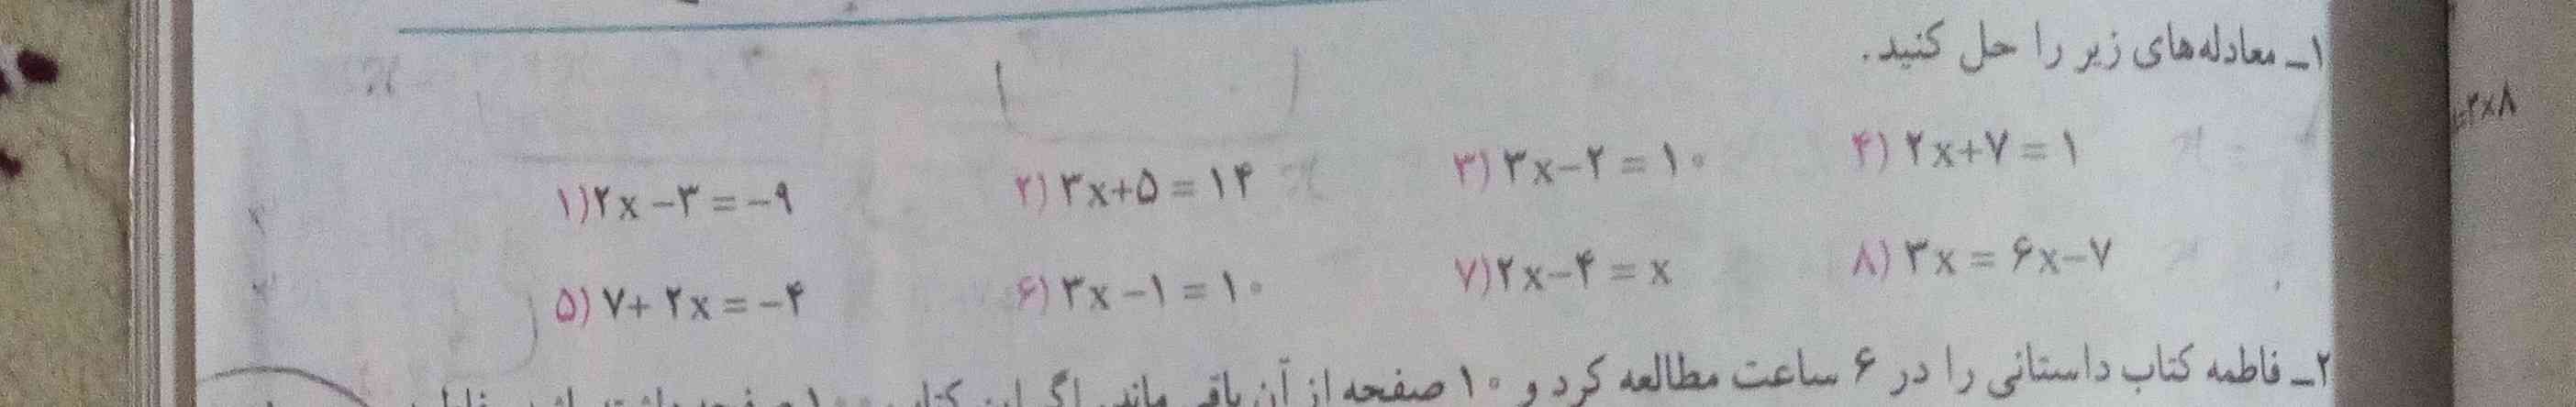 ۱ـ معادله‌های زیر را حل کنید.
۱) ۲x − ۳ = −۹ ۲) ۳x+۵ = ۱۴ ۳) ۳x−۲ = ۱۰ ۴) ۲x+۷ = ۱
۵) ۷+ ۲x = −۴ ۶) ۳x −۱ = ۱۰ ۷) ۲x−۴ = x ۸) ۳x = ۶x−۷
۲ـ فاطمه کتاب داستانی را در ۶ ساعت مطالعه کرد و ۱۰ صفحه از آن باقی ماند. اگر این کتاب
۲×۸